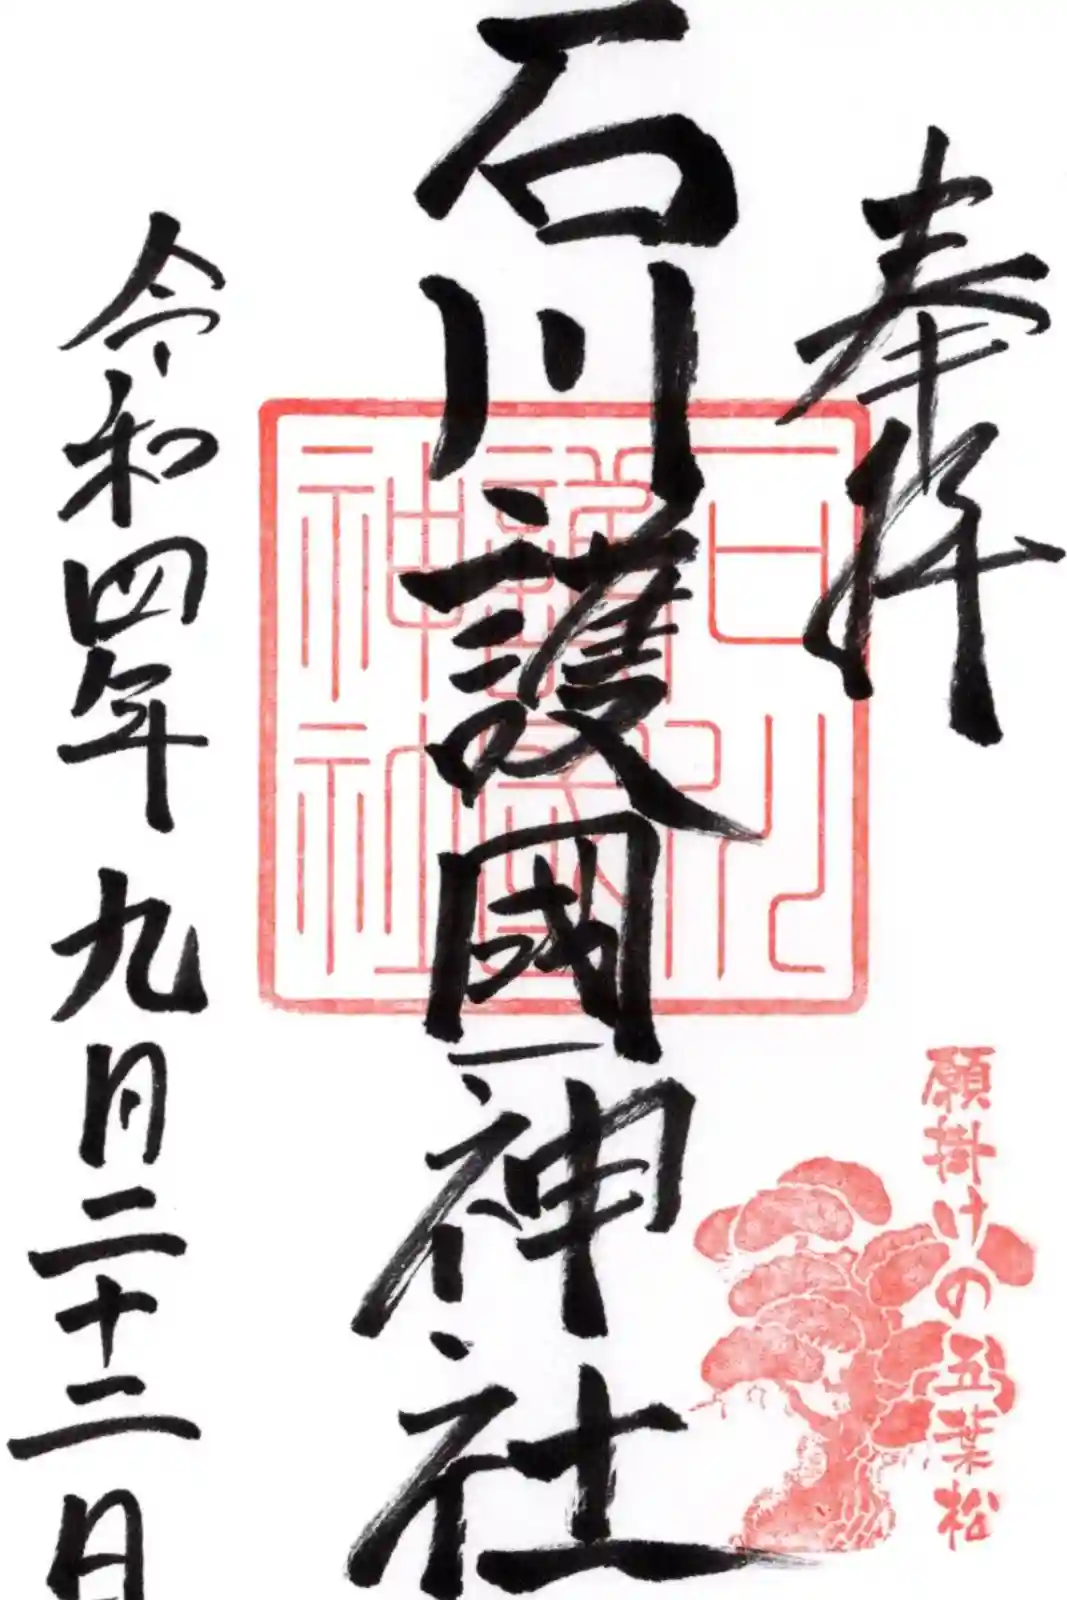 奉拝
石川護國神社
石川護國神社
令和四年九月二十二日
願掛けの五葉松